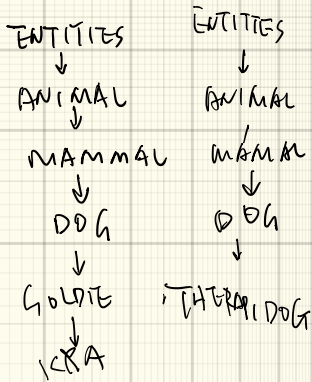 ENTITIES
ANIMAL
MAMMAL
DOG
GOLDIE
ICRA
ENTITIES
ANIMAL
MAMAL
DOG
THERAPIDOG